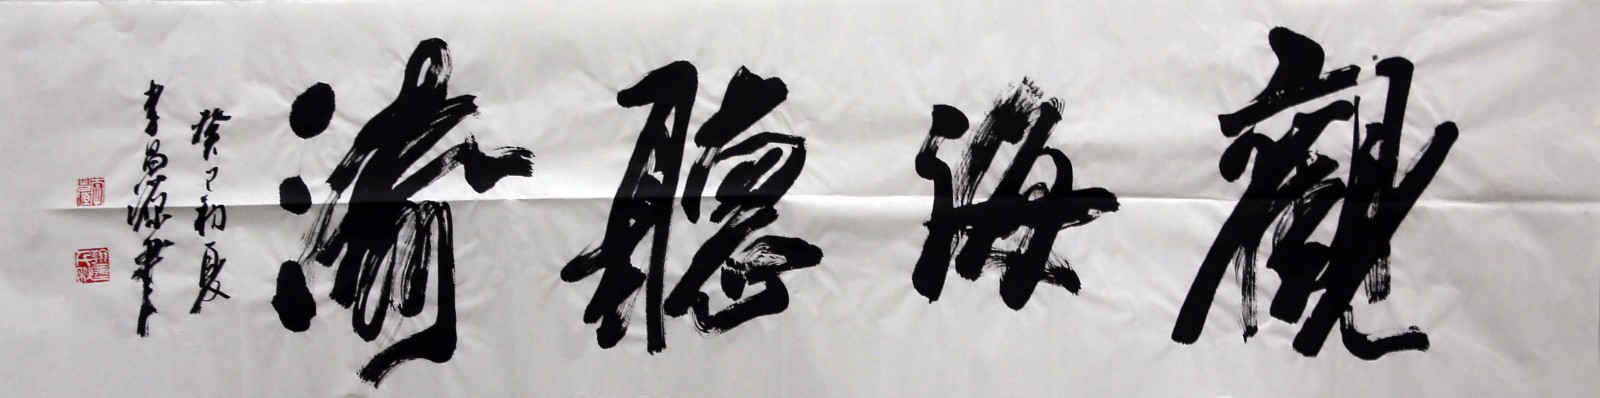 觀海聽濤
癸巳初夏
李昌源書